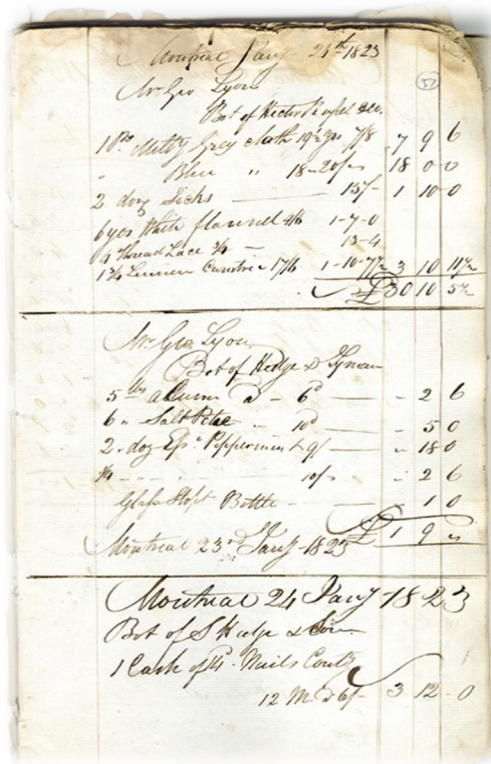 Montreal Jany 24th 1823
57
Mr Geo Lyon
Bot of Hector Russel &Co.
1 Ps Milty Grey cloth 19½ yds 7/8 7 9 6
" Blue " 18 - 20/- 18 0 0
2 doz Socks 15/- 1 10 0
6 yds White flannel 4/6 1-7-0
4 thread Lace 3/4 - 13-4
1¾ Linnen Cambric 17/6 1-10-7½ 3 10 11½
£30 10 5½
Mr Geo Lyon
Bot of Hedge & Lyman
5 lbs allum a - 6d - - 2 6
6 " Salt Petre " 10d - " 5 0
2 " doz Ess " Peppermint 9/ - " 18 0
¼ - - - 10/- - " 2 6
Glass Stopt Bottle - 1 0
£ 1 9 "
Montreal 23rd Jany 1823
Montreal 24 Jany 1823
Bot of S & Son
1 Cask of Nails Contg
12 M @ 6/- 3 12 0